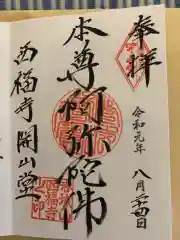 奉拝
令和元年
八月二四日
本尊阿弥陀佛
西福寺開山堂